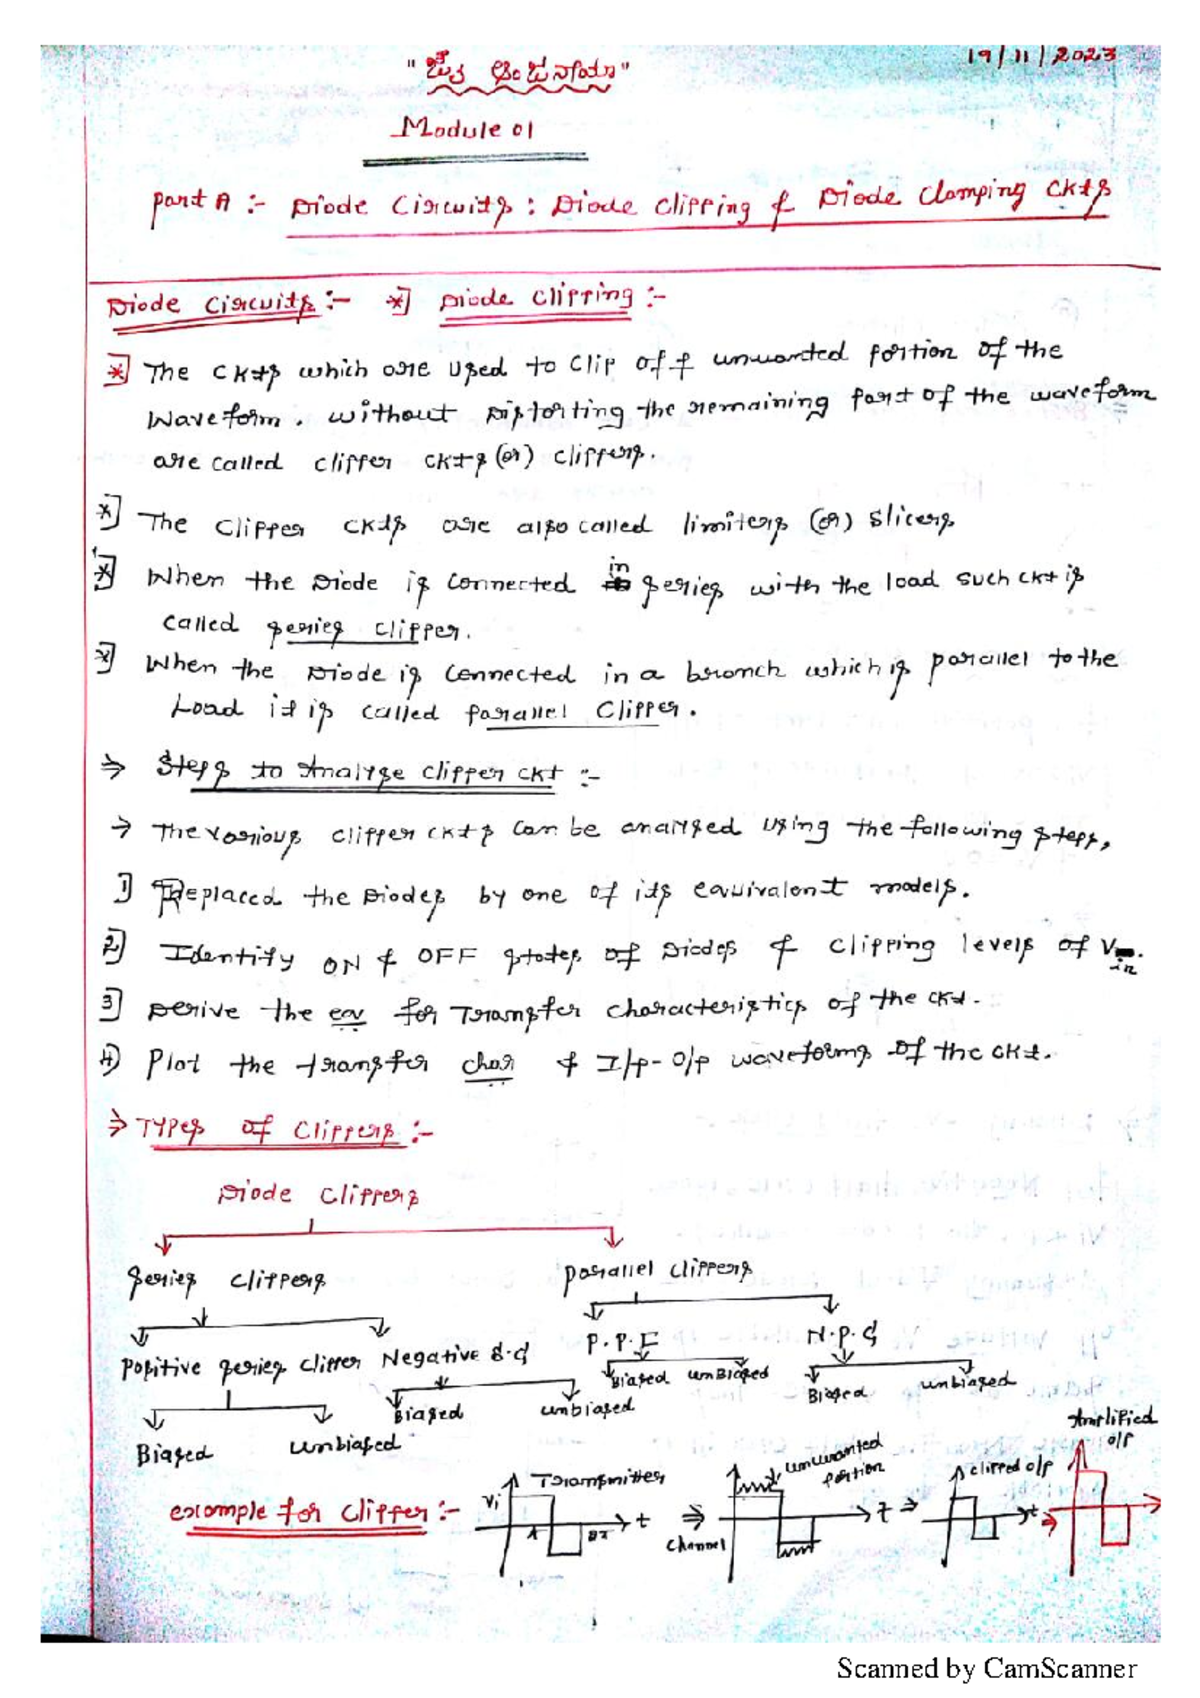 19/11/2023
"ಜೈ ಆಂಜನೇಯ"
Module 01
Part A :- Diode Circuits : Diode Clipping & Diode Clamping Ckts
Diode Circuits :- *] Diode Clipping :-
*] The Ckts which are used to Clip off unwanted portion of the
Waveform. without Distorting the remaining part of the waveform
are called clipper ckts (or) clippers.
*] The Clipper ckts are also called limiters (or) Slicers
*] When the Diode is Connected in series with the load such ckt is
called series clipper.
*] When the Diode is Connected in a branch which is parallel to the
Load it is called parallel Clipper.
⇒ Steps to Analyse clipper ckt :-
→ The various clipper ckts Can be analysed using the following steps,
1) Replaced the Diodes by one of its equivalent models.
2) Identify ON & OFF states of Diodes & Clipping levels of Vin.
3] Derive the eqn for Transfer characteristics of the ckt.
4) Plot the transfer char & I/p-O/p waveforms of the ckt.
⇒ Types of Clippers :-
Diode Clippers
series Clippers parallel Clippers
Positive series Clipper Negative S.C P.P.C N.P.C
Biased unbiased Biased unbiased Biased unBiased Biased unbiased
example for Clipper :-
Vi Transmitter t
⇒ channel
unwanted portion t ⇒
clipped o/p t ⇒
Amplified o/p
Scanned by CamScanner